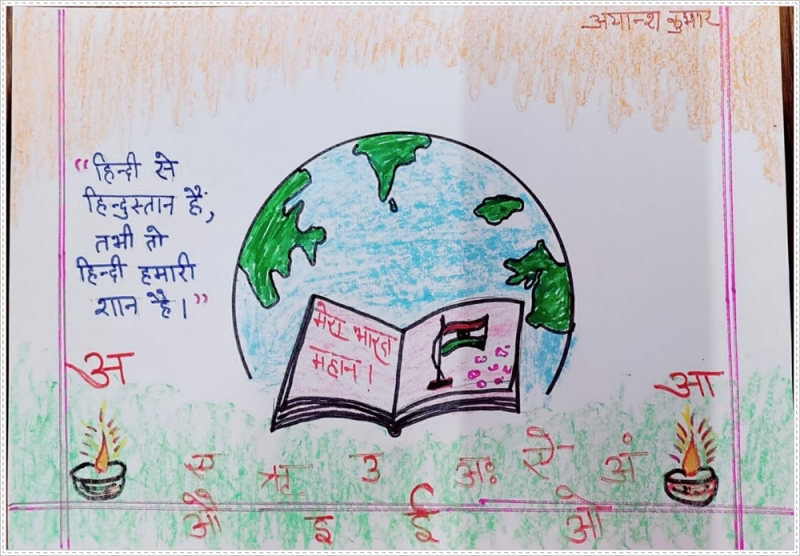 अयान्श कुमार
"हिन्दी से
हिन्दुस्तान हैं,
तभी तो
हिन्दी हमारी
शान है।"
मेरा भारत
महान!
अ आ
ए ऋ उ अः ऐ अं
औ इ ई ओ